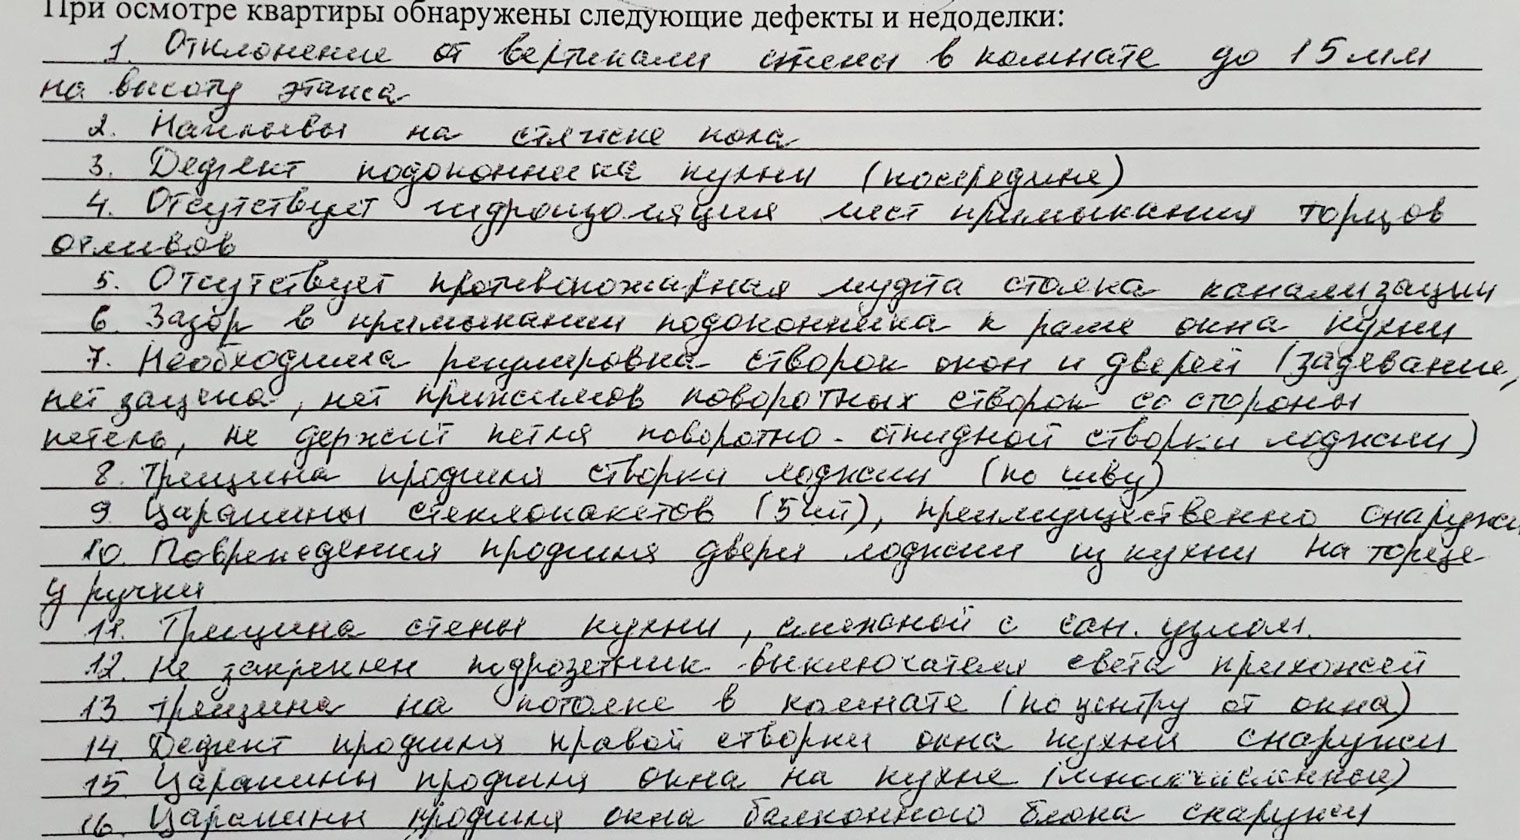 При осмотре квартиры обнаружены следующие дефекты и недоделки:
1. Отклонение от вертикали стены в комнате до 15 мм
на высоту этажа
2. Наплывы на стяжке пола
3. Дефект подоконника кухни (посередине)
4. Отсутствует гидроизоляция мест примыкания торцов
отливов
5. Отсутствует противопожарная муфта стояка канализации
6. Зазор в примыкании подоконника к раме окна кухни
7. Необходима регулировка створок окон и дверей (задевание,
нет зацепа, нет прижимов поворотных створок со стороны
петель, не держит петля поворотно-откидной створки лоджии)
8. Трещина профиля створки лоджии (по шву)
9. Царапины стеклопакетов (5шт), преимущественно снаружи
10. Повреждения профиля двери лоджии из кухни на торце
у ручки
11. Трещина стены кухни, смежной с сан. узлом.
12. Не закреплен подрозетник выключателя света прихожей
13 Трещина на потолке в комнате (по центру от окна)
14. Дефект профиля правой створки окна кухни снаружи
15. Царапины профиля окна на кухне (многочисленные)
16. Царапины профиля окна балконного блока снаружи